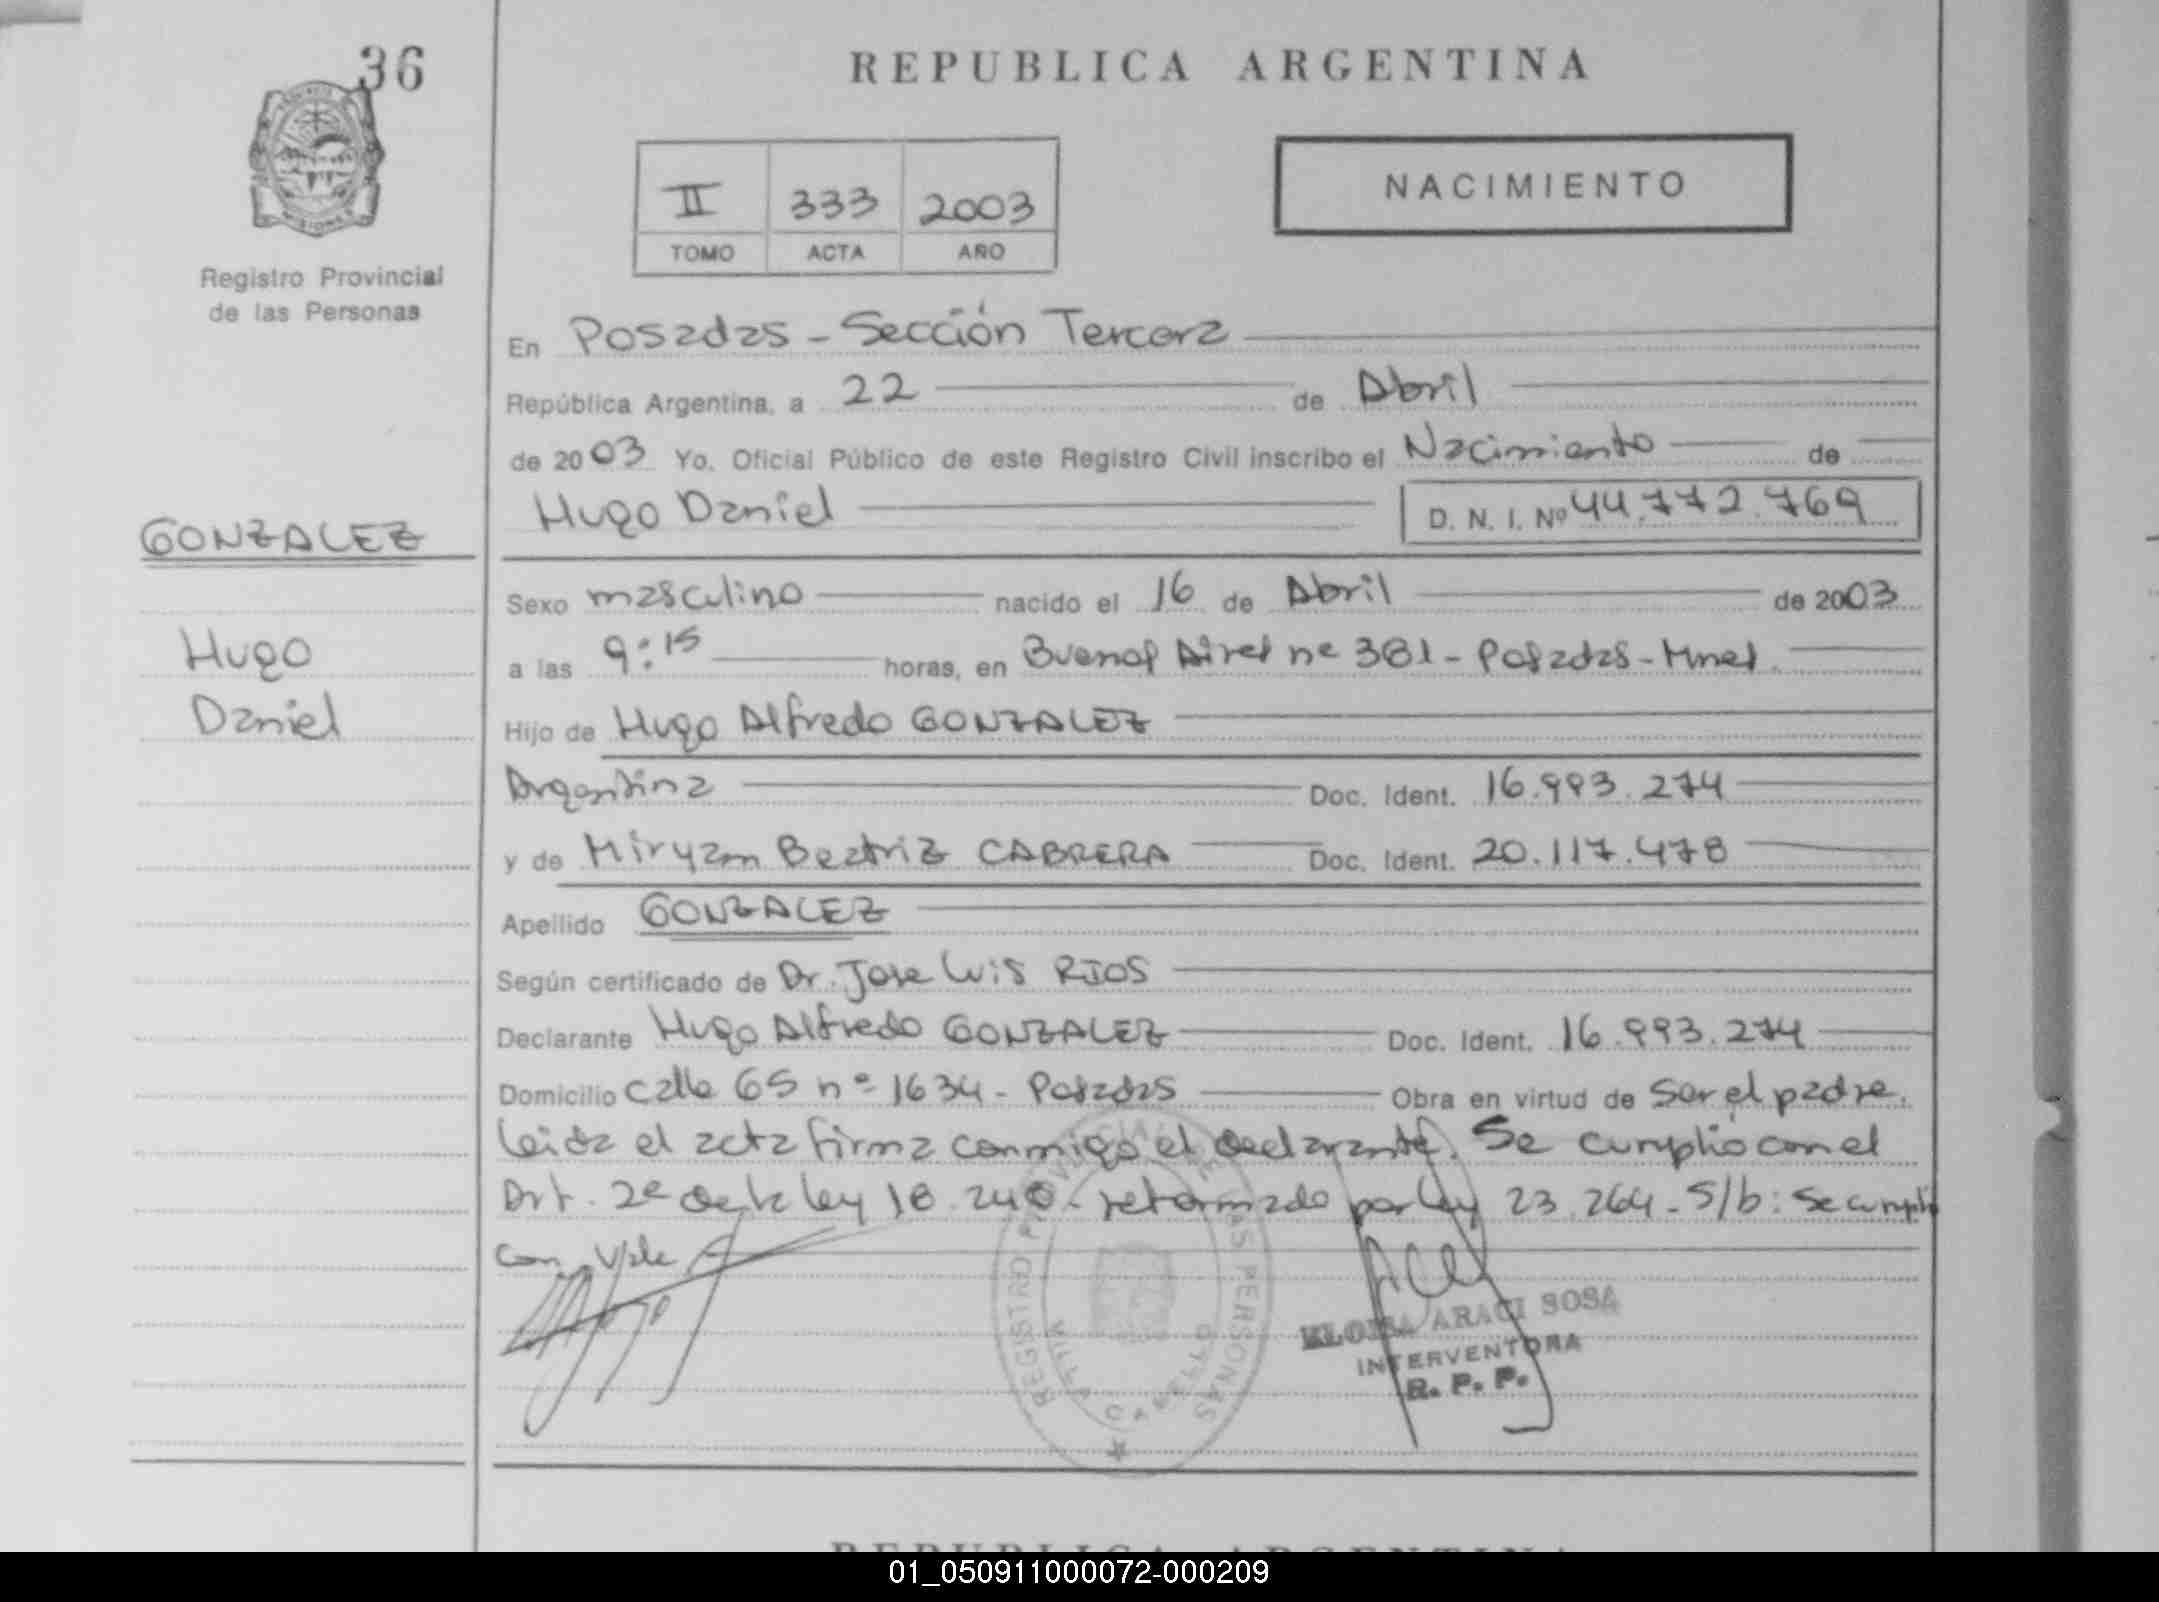 36
REPUBLICA ARGENTINA
PROVINCIA DE MISIONES
Registro Provincial
de las Personas
II 333 2003
TOMO ACTA AÑO
NACIMIENTO
En Posadas - Sección Tercera
República Argentina, a 22 de Abril
de 2003 Yo. Oficial Público de este Registro Civil inscribo el Nacimiento de
Hugo Daniel D. N. I. Nº 44.772.769
GONZALEZ
Hugo
Daniel
Sexo masculino nacido el 16 de Abril de 2003
a las 9:15 horas, en Buenos Aires nº 381 - Posadas - Mnes.
Hijo de Hugo Alfredo GONZALEZ
Argentina Doc. Ident. 16.993.274
y de Miryam Beatriz CABRERA Doc. Ident. 20.117.478
Apellido GONZALEZ
Según certificado de Dr. Jose Luis RIOS
Declarante Hugo Alfredo GONZALEZ Doc. Ident. 16.993.274
Domicilio calle 65 nº 1634 - Posadas Obra en virtud de ser el padre.
Leida el acta firma conmigo el declarante. Se cumplió con el
Art. 2º de la ley 18.248 - reformado por ley 23.264 - S/b: Se cumplió
con. Vale
REGISTRO PROVINCIAL DE LAS PERSONAS
VILLA CABELLO
ELOISA ARACI SOSA
INTERVENTORA
R. P. P.
REPUBLICA ARGENTINA
01_050911000072-000209